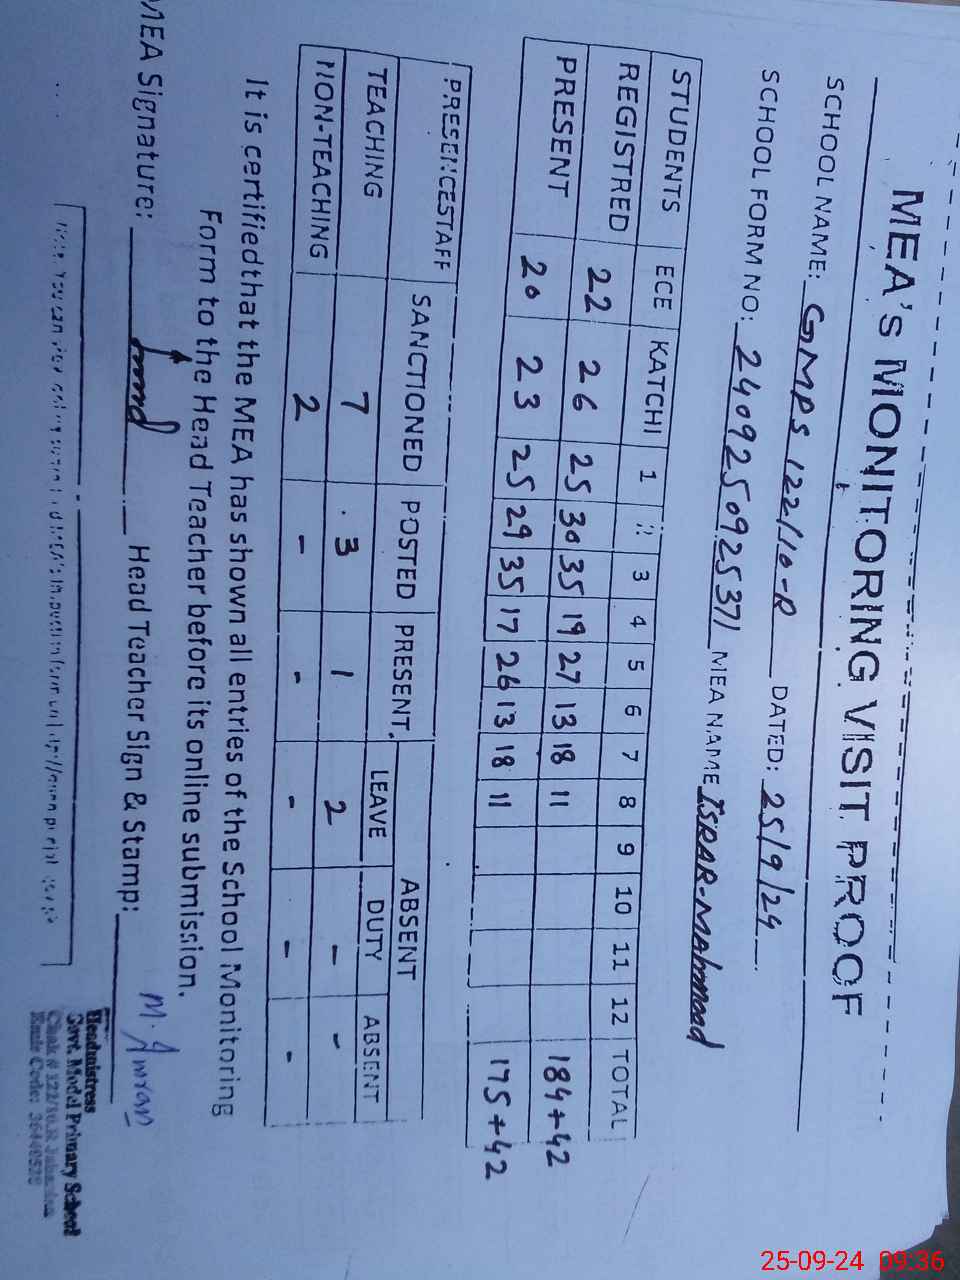 MEA'S MONITORING VISIT PROOF
SCHOOL NAME: GMPS 122/10-R DATED: 25/9/24
SCHOOL FORM NO: 2409250925371 MEA NAME ISRAR-Mahmood
STUDENTS ECE KATCHI 1 2 3 4 5 6 7 8 9 10 11 12 TOTAL
REGISTRED 22 26 25 30 35 19 27 13 18 11 184+42
PRESENT 20 23 25 29 35 17 26 13 18 11 175+42
PRESENCESTAFF SANCTIONED POSTED PRESENT ABSENT
LEAVE DUTY ABSENT
TEACHING 7 3 1 2 - -
NON-TEACHING 2 - - - - -
It is certifiedthat the MEA has shown all entries of the School Monitoring
Form to the Head Teacher before its online submission.
MEA Signature: Head Teacher Sign & Stamp: M. Amran
Headmistress
Govt. Model Primary School
Chak # 122/10.R Jahanian
25-09-24 09:36